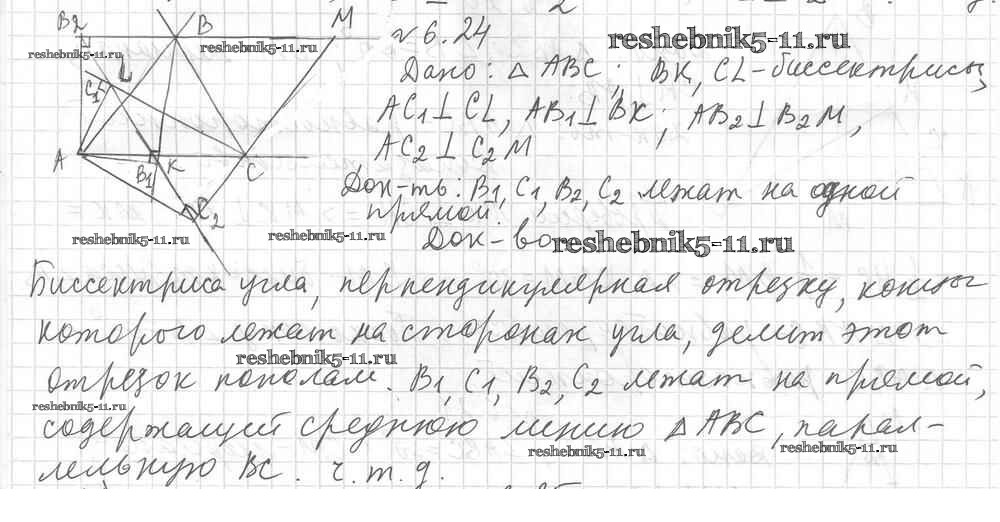 B2 B M
N 6.24
reshebnik5-11.ru
reshebnik5-11.ru
reshebnik5-11.ru
Дано: △ ABC; BK, CL-биссектрисы
L
C1
AC1⊥CL, AB1⊥BK; AB2⊥B2M,
AC2⊥C2M
A B1 K C
Док-ть: B1, C1, B2, C2 лежат на одной
прямой.
C2
reshebnik5-11.ru
reshebnik5-11.ru
Док-во
reshebnik5-11.ru
Биссектриса угла, перпендикулярная отрезку, концы
которого лежат на сторонах угла, делит этот
reshebnik5-11.ru
отрезок пополам. B1, C1, B2, C2 лежат на прямой,
reshebnik5-11.ru
содержащей среднюю линию △ ABC, парал-
reshebnik5-11.ru
reshebnik5-11.ru
лельную BC. ч.т.д.